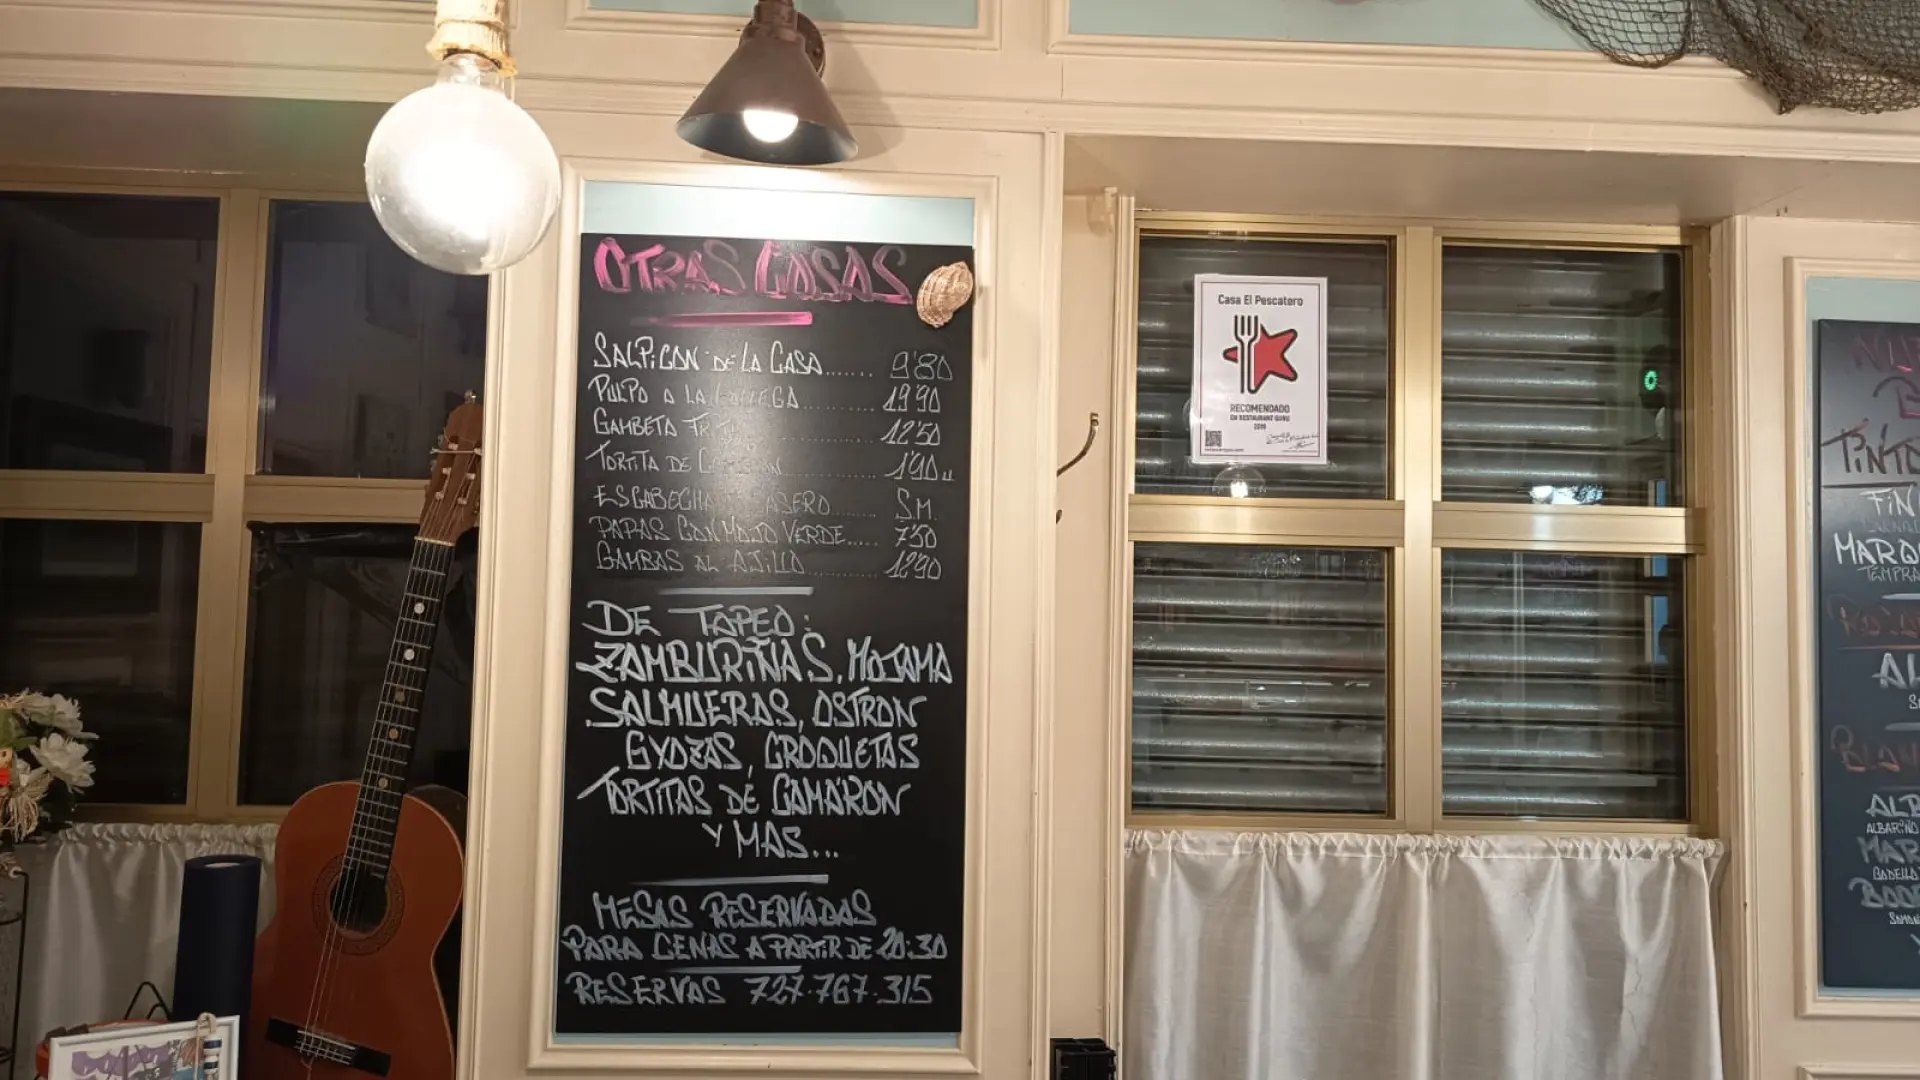 OTRAS COSAS
SALPICON DE LA CASA....... 9'80
PULPO A LA GALLEGA.......... 19'90
GAMBETA FRITA.............. 12'50
TORTITA DE CAMARON........... 1'90 u
ESCABECHADO CASERO....... S.M.
PAPAS CON MOJO VERDE..... 7'50
GAMBAS AL AJILLO............ 12'90
DE TAPEO:
ZAMBURIÑAS, MOJAMA
SALMUERAS, OSTRON
GYOZAS, CROQUETAS
TORTITAS DE CAMARÓN
Y MAS...
MESAS RESERVADAS
PARA CENAS A PARTIR DE 20:30
RESERVAS 727·767·315
Casa El Pescatero
RECOMENDADO
EN RESTAURANT GURU
2019
PINTO
FIN
MARQ
TEMPRA
AL
ALB
ALBARIÑO
MAR
BOD